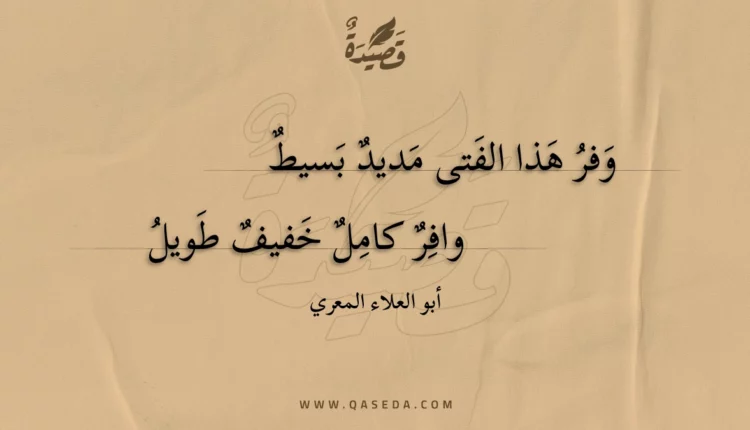 قَصِيْدَةٌ
وَفرُ هَذا الفَتى مَديدٌ بَسيطٌ
وافِرٌ كامِلٌ خَفيفٌ طَويلُ
أبو العلاء المعري
WWW.QASEDA.COM